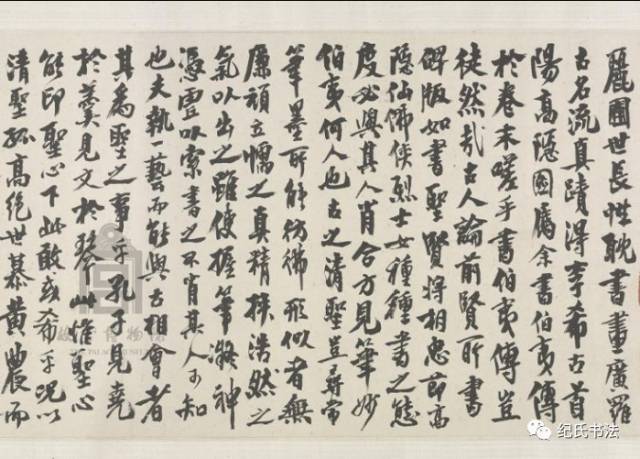 麗圃世長性耽書畫廣羅
古名流真蹟得李希古首
陽高隱圖屬余書伯夷傳
於卷末嗟乎書伯夷傳豈
徒然哉古人論前賢所書
碑版如書聖賢將相忠節高
隱仙佛俠烈士女種種書之態
度必與其人肖合方見筆妙
伯夷何人也古之清聖豈尋常
筆墨所能彷彿形似者無
廉頑立懦之真精操浩然之
氣以出之雖使握筆凝神
憑虛以索書之不肖其人可知
也夫執一藝而能與古相會者
其為聖之事乎孔子見堯
於羹見文於琴此惟聖心
能印聖心下此敢云希乎況以
清聖孤高絕世慕黃農而
纪氏书法